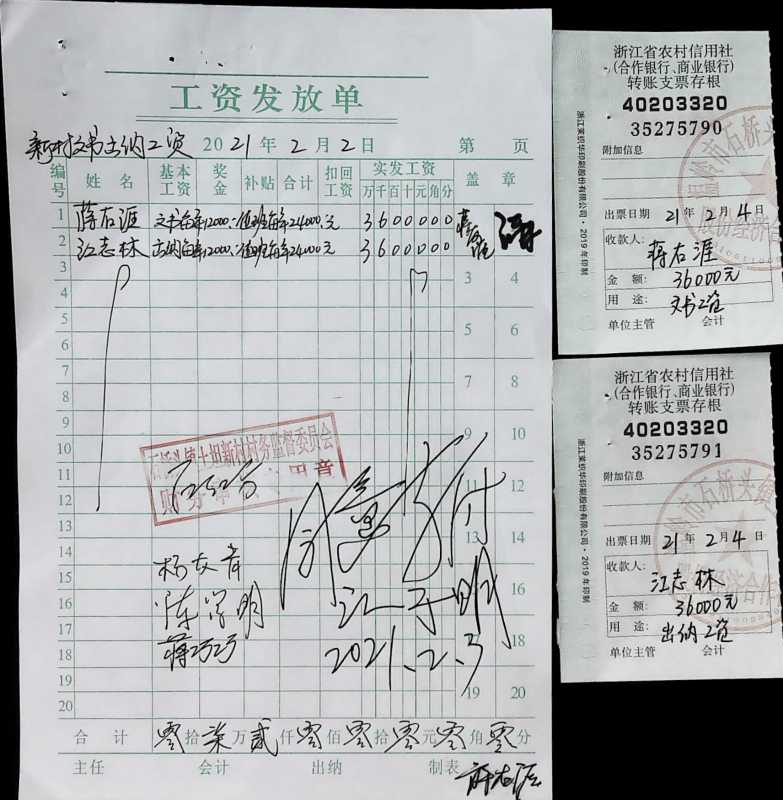 工资发放单
新村文书出纳工资 2021年2月2日 第 页
编号 姓名 基本工资 奖金 补贴 合计 扣回工资 实发工资 盖章
万千百十元角分
1 蒋右涯 文书每年12000.值班每年24000.元 3600000
2 江志林 出纳每年12000.值班每年24000元 3600000
3 3 4
4
5 5 6
6
7 7 8
8
9 9 10
10
11 11 12
12
13 13 14
14
15 15 16
16
17 18
18
19 19 20
20
石桥头镇上坦新村村务监督委员会
同意支付
江子明
2021.2.3
杨友青
陈学明
合计 零拾柒万贰仟零佰零拾零元零角零分
主任 会计 出纳 制表 蒋右涯
浙江省农村信用社
(合作银行、商业银行)
转账支票存根
40203320
35275790
附加信息
出票日期 21年2月4日
收款人:
蒋右涯
金额: 36000元
用途: 文书工资
单位主管 会计
浙江省农村信用社
(合作银行、商业银行)
转账支票存根
40203320
35275791
附加信息
出票日期 21年2月4日
收款人:
江志林
金额: 36000元
用途: 出纳工资
单位主管 会计